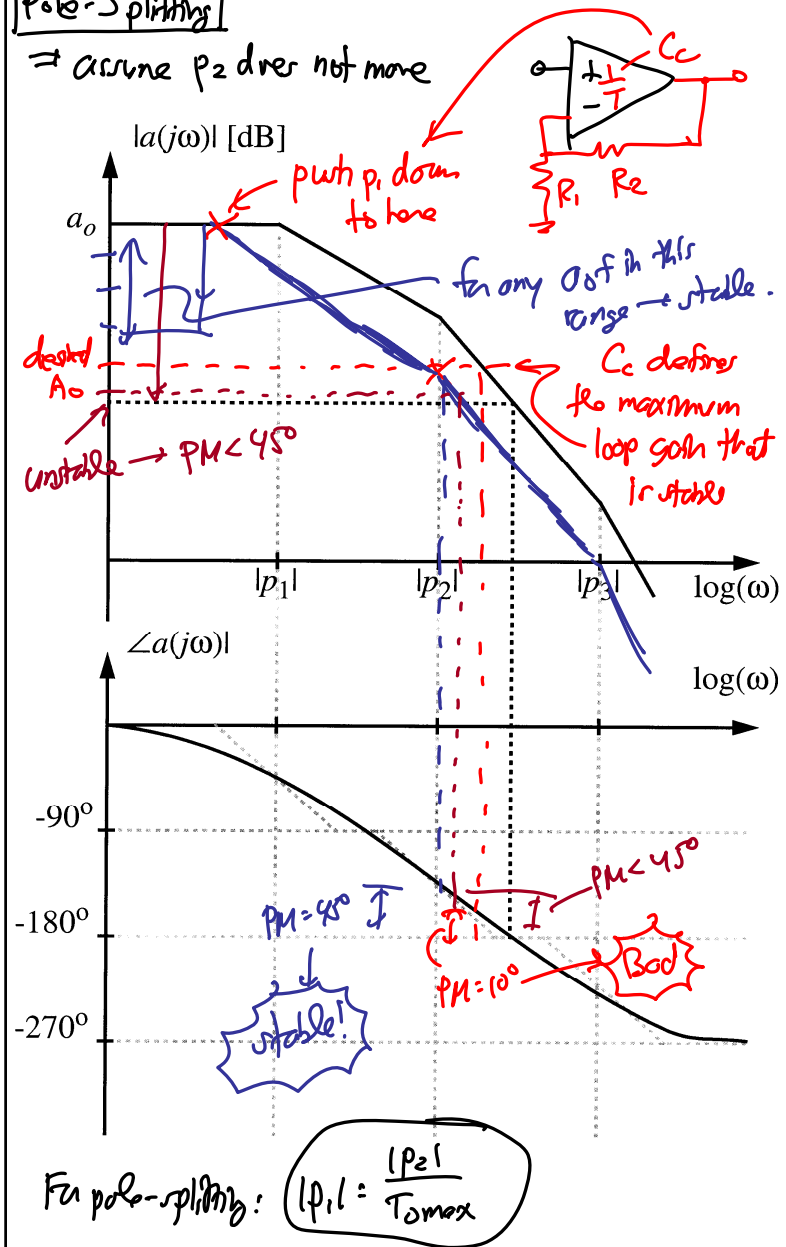 Pole-Splitting
⇒ assume p2 does not move
Cc
+
-
R1 R2
|a(jω)| [dB]
push p1 down
to here
ao
for any aof in this
range → stable.
desired
Ao
Cc defines
the maximum
loop gain that
is stable
unstable → PM < 45°
|p1|
|p2|
|p3|
log(ω)
∠a(jω)|
log(ω)
-90°
PM < 45°
PM = 45°
-180°
Bad
PM = 10°
stable!
-270°
For pole-splitting: |p1| = |p2| / Tomax